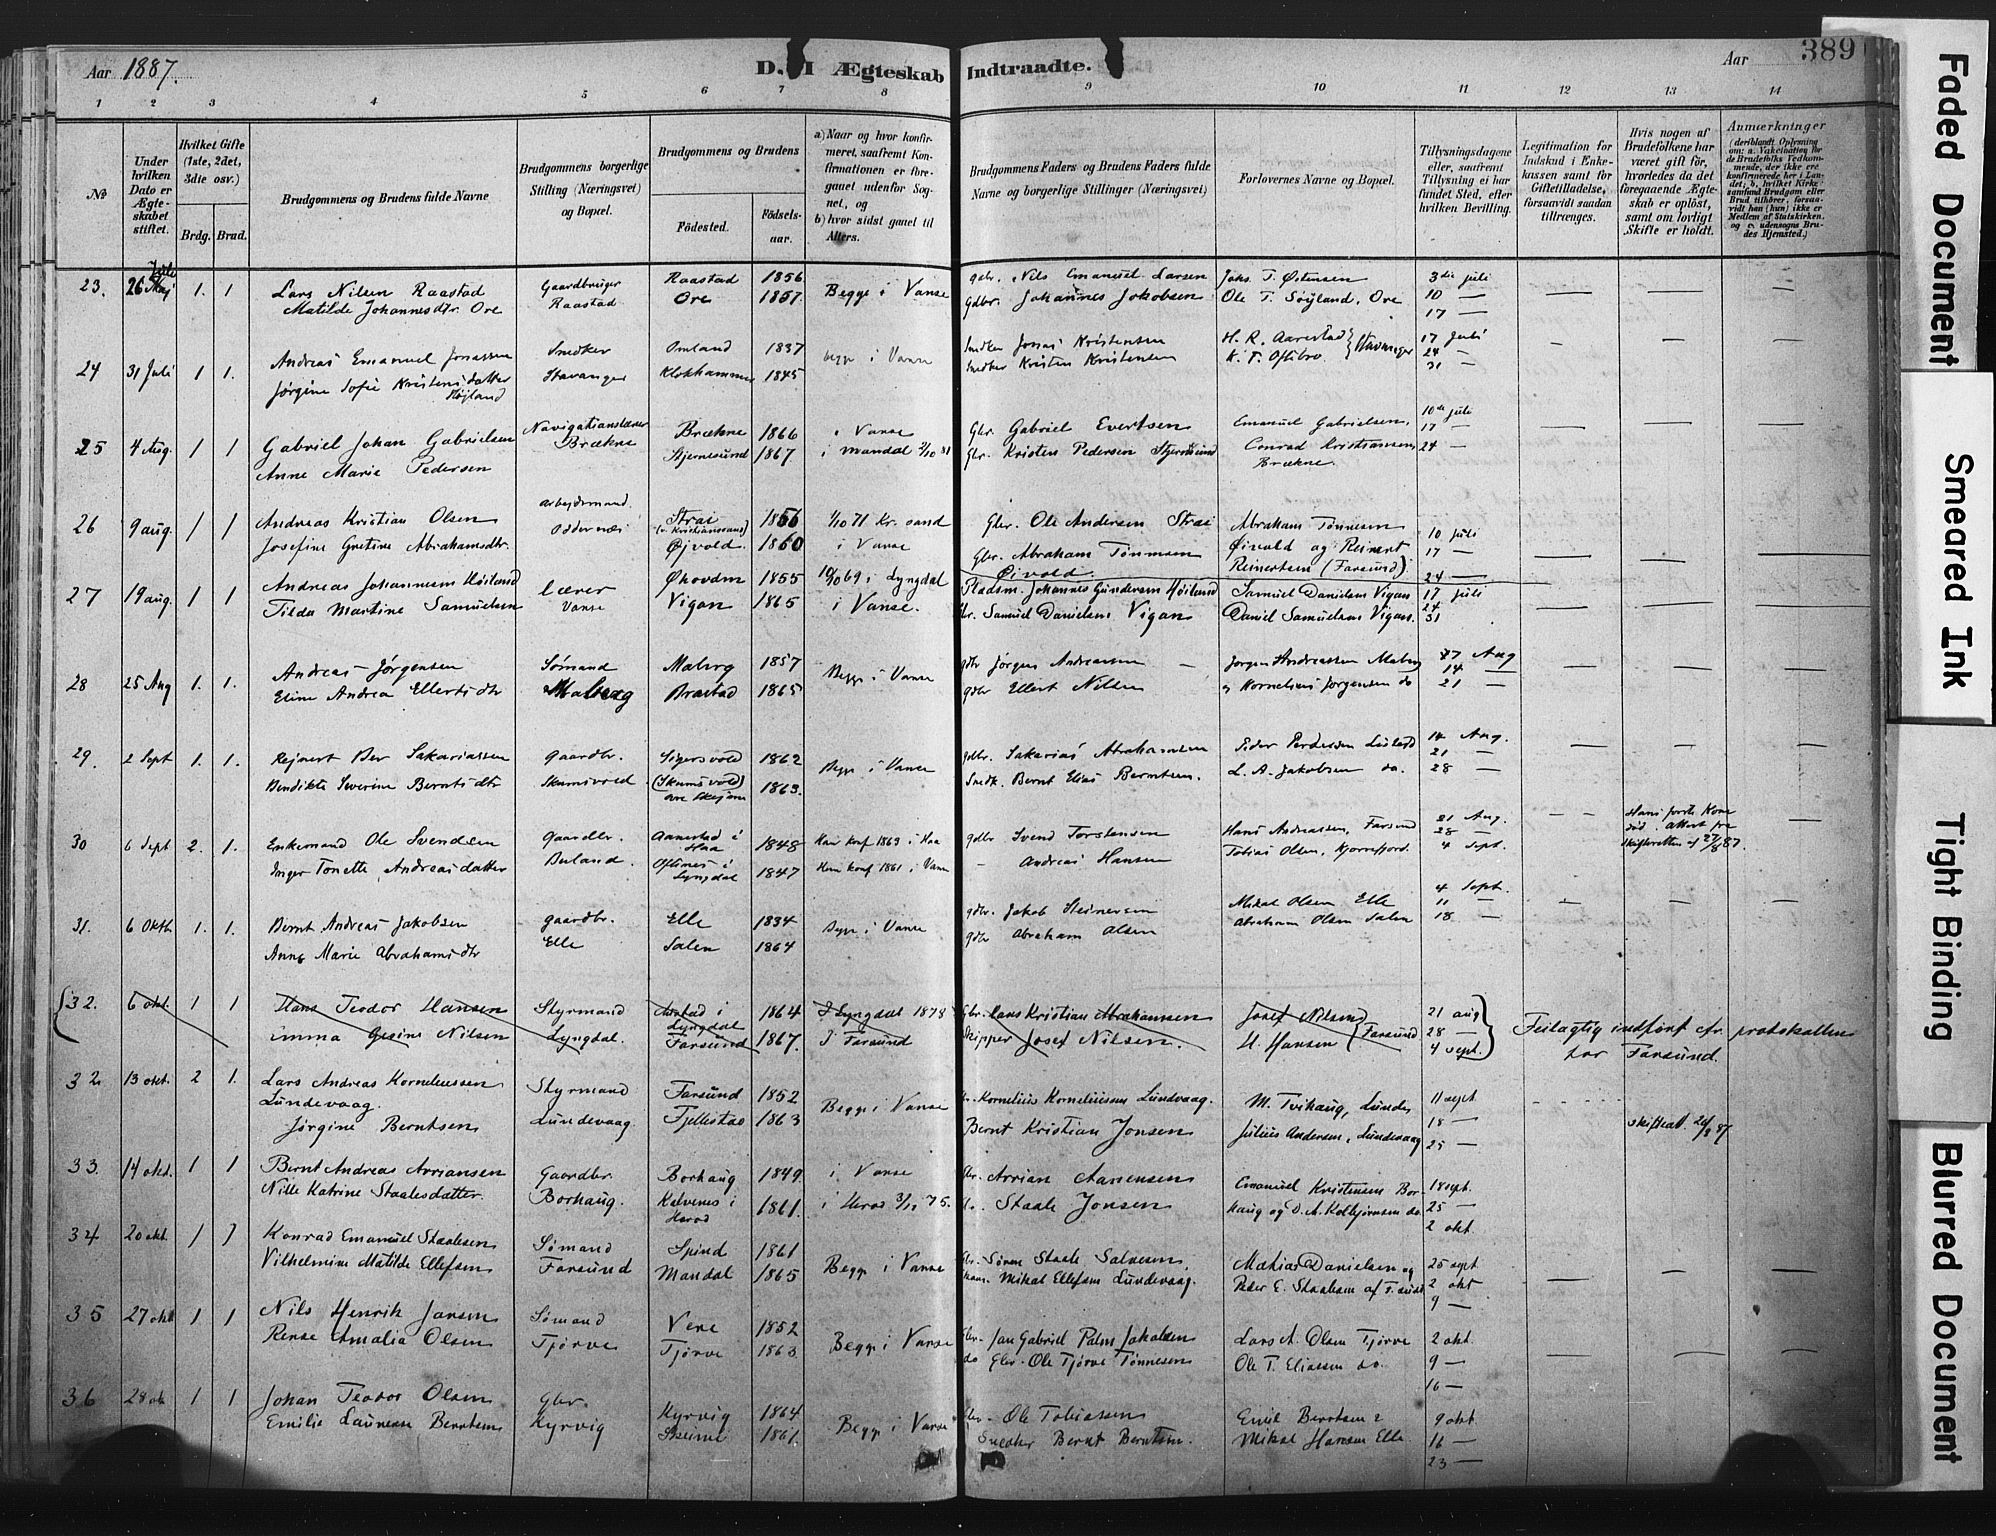 Aar 1887.
D. I Ægteskab Indtraadte.
Aar
389
1 2 3 4 5 6 7 8 9 10 11 12 13 14
No
Under hvilken Dato er Ægteskabet stiftet.
Hvilket Gifte (1ste, 2det, 3die osv.)
Brdg. Brud.
Brudgommens og Brudens fulde Navne
Brudgommens borgerlige Stilling (Næringsvei) og Bopæl.
Brudgommens og Brudens
Fødested.
Fødselsaar.
a) Naar og hvor konfirmeret, saafremt Konfirmationen er foregaaet udenfor Sognet, og
b) hvor sidst gaaet til Alters.
Brudgommens Faders og Brudens Faders fulde Navne og borgerlige Stillinger (Næringsvei)
Forlovernes Navne og Bopæl.
Tillysningsdagene eller, saafremt Tillysning ei har fundet Sted, efter hvilken Bevilling.
Legitimation for Indskud i Enkekassen samt for Giftetilladelse, forsaavidt saadan tiltrænges.
Hvis nogen af Brudefolkene har været gift før, hvorledes da det foregaaende Ægteskab er opløst, samt om lovligt Skifte er holdt.
Anmærkninger
23. 26 Juli 1. 1 Lars Nilsen Raastad Gaardbruger Raastad 1856 Begge i Vanse gdbr. Nils Emanuel Larsen Jahs. T. Østensen 3die juli
Matilde Johannesdtr. Ore Raastad Ore 1857 Gdbr. Johannes Jakobsen Ole T. Søyland, Ore 10 —
17 —
24 31 Juli 1 1. Andreas Emanuel Jonassen Snedker Omland 1837 begge i Vanse Snedker Jonas Kristensen H. R. Aarestad 17 Juli
Jørgine Sofie Kristensdatter Stavanger Klokhammer 1845 Snedker Kristen Kristensen K. T. Oftebro. Stavanger 24 —
Højland 31 —
25 4 Aug. 1 1 Gabriel Johan Gabrielsen Navigationslærer Brækne 1866 i Vanse Gbr. Gabriel Evertsen Emanuel Gabrielsen, 10de juli
Anne Marie Pedersen Brækne Stjernesund 1867 i Mandal 2/10 81 Gbr. Kristen Pedersen Stjernesund Conrad Kristiansen, 17 —
Brækne. 24 —
26 9 aug. 1 1 Andreas Kristian Olsen arbejdsmand Strai 1856 1/10 71 Kr. sand Gbr. Ole Andersen Strai Abraham Tønnesen 10 juli
Josefine Gretine Abrahamsdtr. Oddernæs (v. Kristianssand) Øjvold. 1860 i Vanse Gbr. Abraham Tønnesen Øivold Øivold og Reinert Reinertsen (Farsund) 17 —
24 —
27 19 aug. 1 1 Andreas Johannesen Høiland Lærer 1855 10/10 69 i Lyngdal Pladsm. Johannes Gundersen Høiland Samuel Danielsen Vigan 17 juli
Tilda Martine Samuelsen Vanse Vigan 1865 i Vanse. Gbr. Samuel Danielsen Vigan Daniel Samuelsen Vigan. 24
31
28 25 Aug 1. 1. Andreas Jørgensen Sømand Malerg 1857 Begge i Vanse gdbr Jørgen Andreassen — Jørgen Andreassen Malerg 7 Aug
Eline Andrea Ellertsdtr Brastad 1865 gdbr Ellert Nilsen og Kornelius Jørgensen do 14 —
21 —
29. 2 Sept 1. 1. Rejnert Ber Sakariassen Gaardbr. Sigersvold 1862 Begge i Vanse gdbr. Sakarias Abrahamsen Peder Pedersen 14 Aug.
Bendikte Severine Berntsdtr Skumsvold (Skumsvold) 1863. Snedk. Bernt Elias Berntsen. L. A. Jakobsen do. 21 —
28 —
30 6 sept 2. 1. Enkemand Ole Svendsen Gaardbr. Aanestad i Haa 1848 Han konf 1863 i Haa gdbr Svend Torstensen Hans Andreassen, Farsund 21 Aug. Hans første Kone død. attest fra skifteretten af 27/8 87.
Inger Tonette Andreasdatter Buland. Lyngdal 1847 Hun konf 1861 i Vanse — Andreas Hansen Tobias Olsen, Kjørrefjord. 28 —
4 Sept.
31. 6 Okth 1. 1. Bernt Andreas Jakobsen gaardbr. Elle 1834 Begge i Vanse gdbr. Jakob Steinersen Mikal Olsen Elle 4 Sept.
Anne Marie Abrahamsdtr Elle Salen 1864 gdbr Abraham Olsen Abraham Olsen Salen 11 —
18 —
32. 6 okt. 1 1 Hans Teodor Hansen Styrmand i Lyngdal 1864 I Lyngdal 1878 Gbr. Hans Kristian Abrahamsen Josef Nilsen 21 aug Feilagtig indført fr. protokollen
Emma Gesine Nilsen Lyngdal. Farsund 1867. I Farsund Skipper Josef Nilsen. H. Hansen Farsund 28 — for Farsund.
4 sept.
32 13 okt. 2 1. Lars Andreas Korneliussen Lundevaag. Styrmand Farsund 1852 Begge i Vanse Kornelius Korneliussen Lundevaag. M. Tvihaug, Lunde 11 sept
Jørgine Berntsen Lundevaag Fjellestad 1863 Bernt Kristian Jonsen Julius Andersen, Lundevaag 18 — skifteatt. 26/8 87
25 —
33. 14 okt. 1 1 Bernt Andreas Arriansen Gaardbr Borhaug 1849. i Vanse Gbr. Arrian Aanensen Emanuel Kristensen Bor- 18 sept.
Nille Katrine Staalesdatter. Borhaug. Kalvenes i Herad 1861. i Herad 3/10 75. Staale Jonsen haug og D. A. Kolbjørnsen do. 25 —
2 okt
34 20 okt. 1 1 Konrad Emanuel Staalesen Sømand Spind 1861 Begge i Vanse Gbr. Søren Staale Salvesen Mathias Danielsen og 25 sept
Vilhelmine Matilde Ellefsen Farsund Mandal 1865 Mikal Ellefsen Lundevaag. Peder E. Staalesen af F.sund 2 okt
9 —
35 27 okt 1 1 Nils Henrik Jansen Sømand Vere 1852 Begge i Vanse Gbr. Jan Gabriel Palm Jakobsen Lars A. Olsen Tjørve 2 okt.
Rense Amalia Olsen Tjørve Tjørve 1863 do Gbr. Ole Tjørve Tønnesen Ole T. Eliassen do. 9 —
16 —
36 28 ok 1 1 Johan Teodor Olsen Gbr. Kyrvig 1864 Begge i Vanse Gbr. Ole Tobiassen Emil Berntsen 9 okt
Emilie Laurense Berntsen Kyrvig Skeime 1861 Snedker Bernt Berntsen. Mikal Hansen Elle 16 —
23 —
Faded Document
Smeared Ink
Tight Binding
Blurred Document